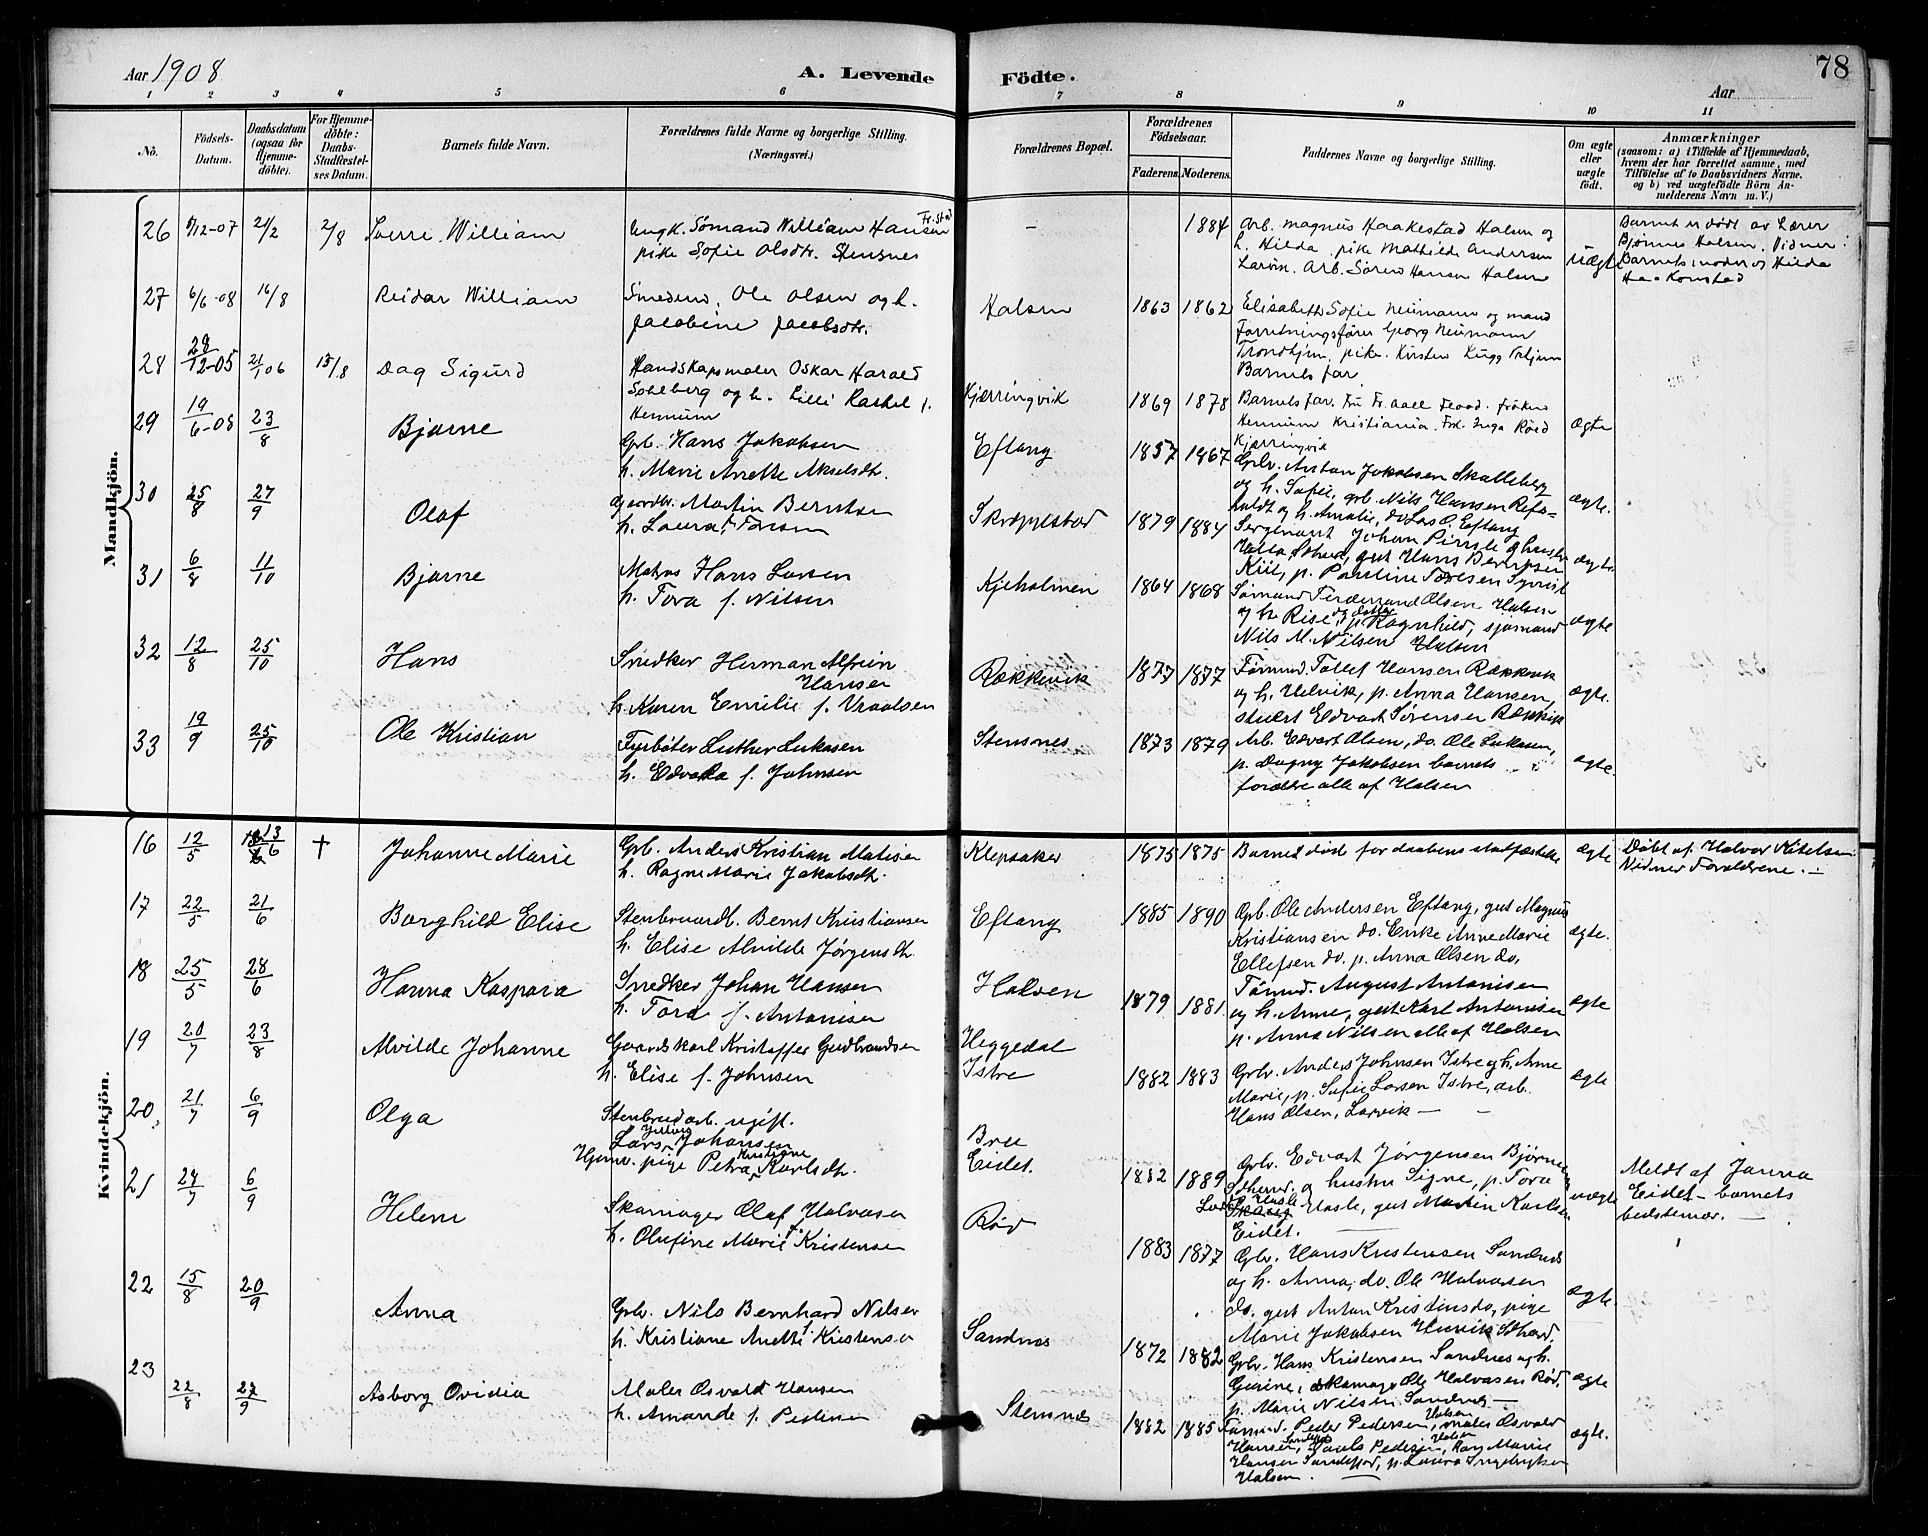 Aar 1908
A. Levende Födte.
78
Aar
1 2 3 4 5 6 7 8 9 10 11
No.
Födsels-Datum.
Daabsdatum (ogsaa for Hjemme-döbte).
For Hjemme-döbte: Daabs-Stadfæstel-ses Datum.
Barnets fulde Navn.
Forældrenes fulde Navne og borgerlige Stilling. (Næringsvei.)
Forældrenes Bopæl.
Forældrenes Födselsaar.
Faderens. Moderens.
Faddernes Navne og borgerlige Stilling.
Om ægte eller uægte födt.
Anmærkninger
(saasom: a) i Tilfælde af Hjemmedaab, hvem der har forrettet samme, med Tilföielse af to Daabsvidners Navne. og b) ved uægtefödte Börn An-melderens Navn m. V.)
Mandkjön.
26 9/12-07 2/2 2/8 Sverre William
Ungk. Sömand William Hansen Fr.stad
pike Sofie Olsdtr. Stensnes
- 1884
Arb. Magnus Haakestad Halsen og
h. Hilda, pike Mathilde Andersen
Larvik. Arb. Sören Hansen Halsen
uægte
Barnet er döbt av Lærer
Bjønnes Halsen. Vidner:
Barnets moder og Hilda
27 6/6-08 16/8 Reidar William
Smedsv. Ole Olsen og h.
Jacobine Jacobsdtr.
Halsen 1863 1862
Elisabeth Sofie Neumann og mand
Forretningsfører Georg Neumann
Trondhjem, pike Kirsten
Barnets far
28 28/12-05 21/1 06 15/8 Dag Sigurd
Landskapsmaler Oskar Harald
Soelberg og h. Lilli Rachel f.
Hennum
Kjærringvik 1869 1878
Barnets far. Fru Fr. Aall Flood. Fröken
Hennum Kristiania. Frk. Inga Röed
Kjærringvik
ægte
29 19/6-08 23/8 Bjarne
Grb. Hans Jakobsen
h. Marie Anette Akselsdtr.
Eftang 1857 1867
Grbr. Anton Jakobsen Skalleberg
og h. Sofie, grb. Nils Hansen Refa-
holdt og h. Amalie, do Lars O. Eftang
ægte.
30 25/8 27/9 Olaf
Gaardbr. Martin Berntsen
h. Laura f. Larsen
Skrøpestad 1879 1884
Sergenant Johan
gut Hans Berntsen
ægte.
31 6/8 11/10 Bjarne
Matros Hans Larsen
h. Tora f. Nilsen
Kjeholmen 1864 1868
Sømand Ferdernand Olsen Halsen
og h. Rise, og datter p. Ragnhild, sjømand
Nils M. Nilsen Halsen
ægte
32 12/8 25/10 Hans
Snedker Herman Alfein
Hansen
h. Karen Emilie f. Vraalsen
Rækkevik 1877 1877
Tømmd. Tollef Hansen Rækkevik
og h. Helvik, p. Anna Hansen,
stuert Edvart Sørensen Rækkvik
ægte.
33 19/9 25/10 Ole Kristian
Fyrbøter Luther Lukasen
h. Edvarda f. Johnsen
Stensnes 1873 1879
Arb. Edvart Olsen, do. Ole Lukasen,
p. Dagny Jakobsen barnets
forældre alle af Halsen
ægte.
Kvindekjön.
16 12/5 13/6 † Johanne Marie
Grb. Anders Kristian Matisen
h. Ragne Marie Jakobsdtr.
Klepaker 1875 1875
Barnet død før daabens stadfæstelse
ægte
Døbt af Halvor Kittelsen.
Vidner Forældrene.
17 22/5 21/6 Borghild Elise
Stenbruardb. Bernt Kristiansen
h. Elise Alvilde Jørgensdtr.
Eftang 1885 1890
Grb. Ole Andersen Eftang, gut Magnus
Kristiansen do. Enke Anne Marie
Ellefsen do. p. Anna Olsen do.
ægte.
18 25/5 28/6 Hanna Kaspara
Snedker Johan Hansen
h. Tora f. Antonisen
Halsen 1879 1881
Tømmd. August Antonisen
og h. Anne, gut Karl Antonisen
p. Anna Nilsen alle af Halsen
ægte
19 20/7 23/8 Alvilde Johanne
Gaardskarl Kristoffer Gudbrandsen
h. Elise f. Johnsen
Heggedal
Istre 1882 1883
Grbr. Anders Johnsen Istre og h. Anne
Marie, p. Sofie Larsen Istre, arb.
Hans Olsen, Larvik
ægte
20. 21/7 6/9 Olga
Stenbrudarb. ugift.
Lars Johansen
Hjemv. pige Petra Kristiane Karlsdtr.
Bree
Eidet. 1882 1889
Grbr. Edvart Jørgensen
og hustru Signe, p. Tora
Hasle, gut Martin Karlsen
Eidet.
uægte
Meldt af Janna
Eidet - barnets
bedstemor.
21 24/7 6/9 Helene
Skomager Olaf Halvorsen
h. Olufine Marie f. Kristensen
Rød 1883 1877
Grbr. Hans Kristensen Sandnes
og h. Anna, do. Ole Halvorsen
do. gut Anton Kristens do, pige
Marie Jakobsen
ægte.
22 15/8 20/9 Anna
Grbr. Nils Bernhard Nilsen
h. Kristiane Anette f. Kristensen
Sandnes 1872 1882
Grbr. Hans Kristensen Sandnes og h.
Gurine, skomag. Ole Halvorsen Rød,
p. Marie Nilsen Sandnes
ægte
23 22/8 27/9 Asborg Ovidia
Maler Osvald Hansen
h. Amande f. Pedersen
Stensnes 1882 1885
Tømmd. Peder Pedersen Halsen, maler Osvald
Hansen, Pedersen Halsen, Marie
Hansen Sandefjord, p. Laura Ingebrigtsen
Halsen.
ægte.